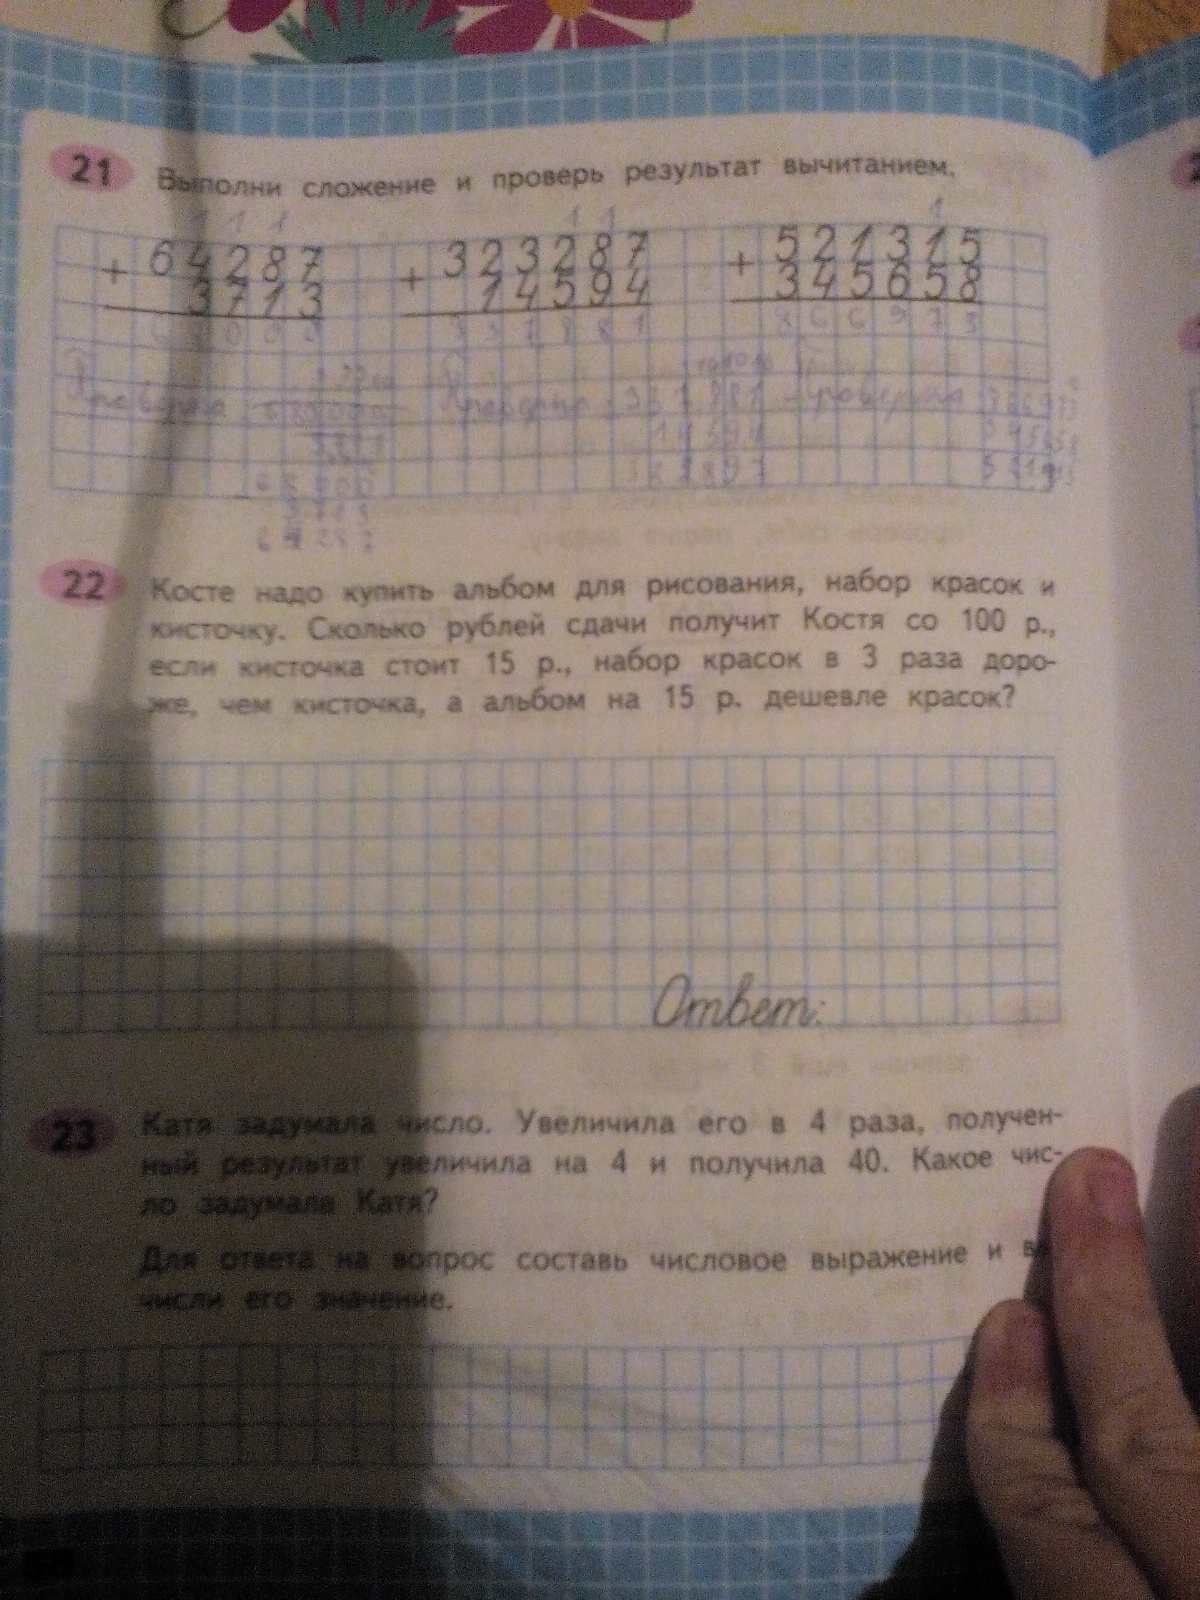 21 Выполни сложение и проверь результат вычитанием.
1 1 1 1 1 1
+ 64287 + 323287 + 521315
3713 14594 345658
337881 866973
Проверка Проверка 337881 Проверка
14594
68000
3713
64287
22 Косте надо купить альбом для рисования, набор красок и
кисточку. Сколько рублей сдачи получит Костя со 100 р.,
если кисточка стоит 15 р., набор красок в 3 раза доро-
же, чем кисточка, а альбом на 15 р. дешевле красок?
Ответ:
23 Катя задумала число. Увеличила его в 4 раза, получен-
ный результат увеличила на 4 и получила 40. Какое чис-
ло задумала Катя?
Для ответа на вопрос составь числовое выражение и
числи его значение.